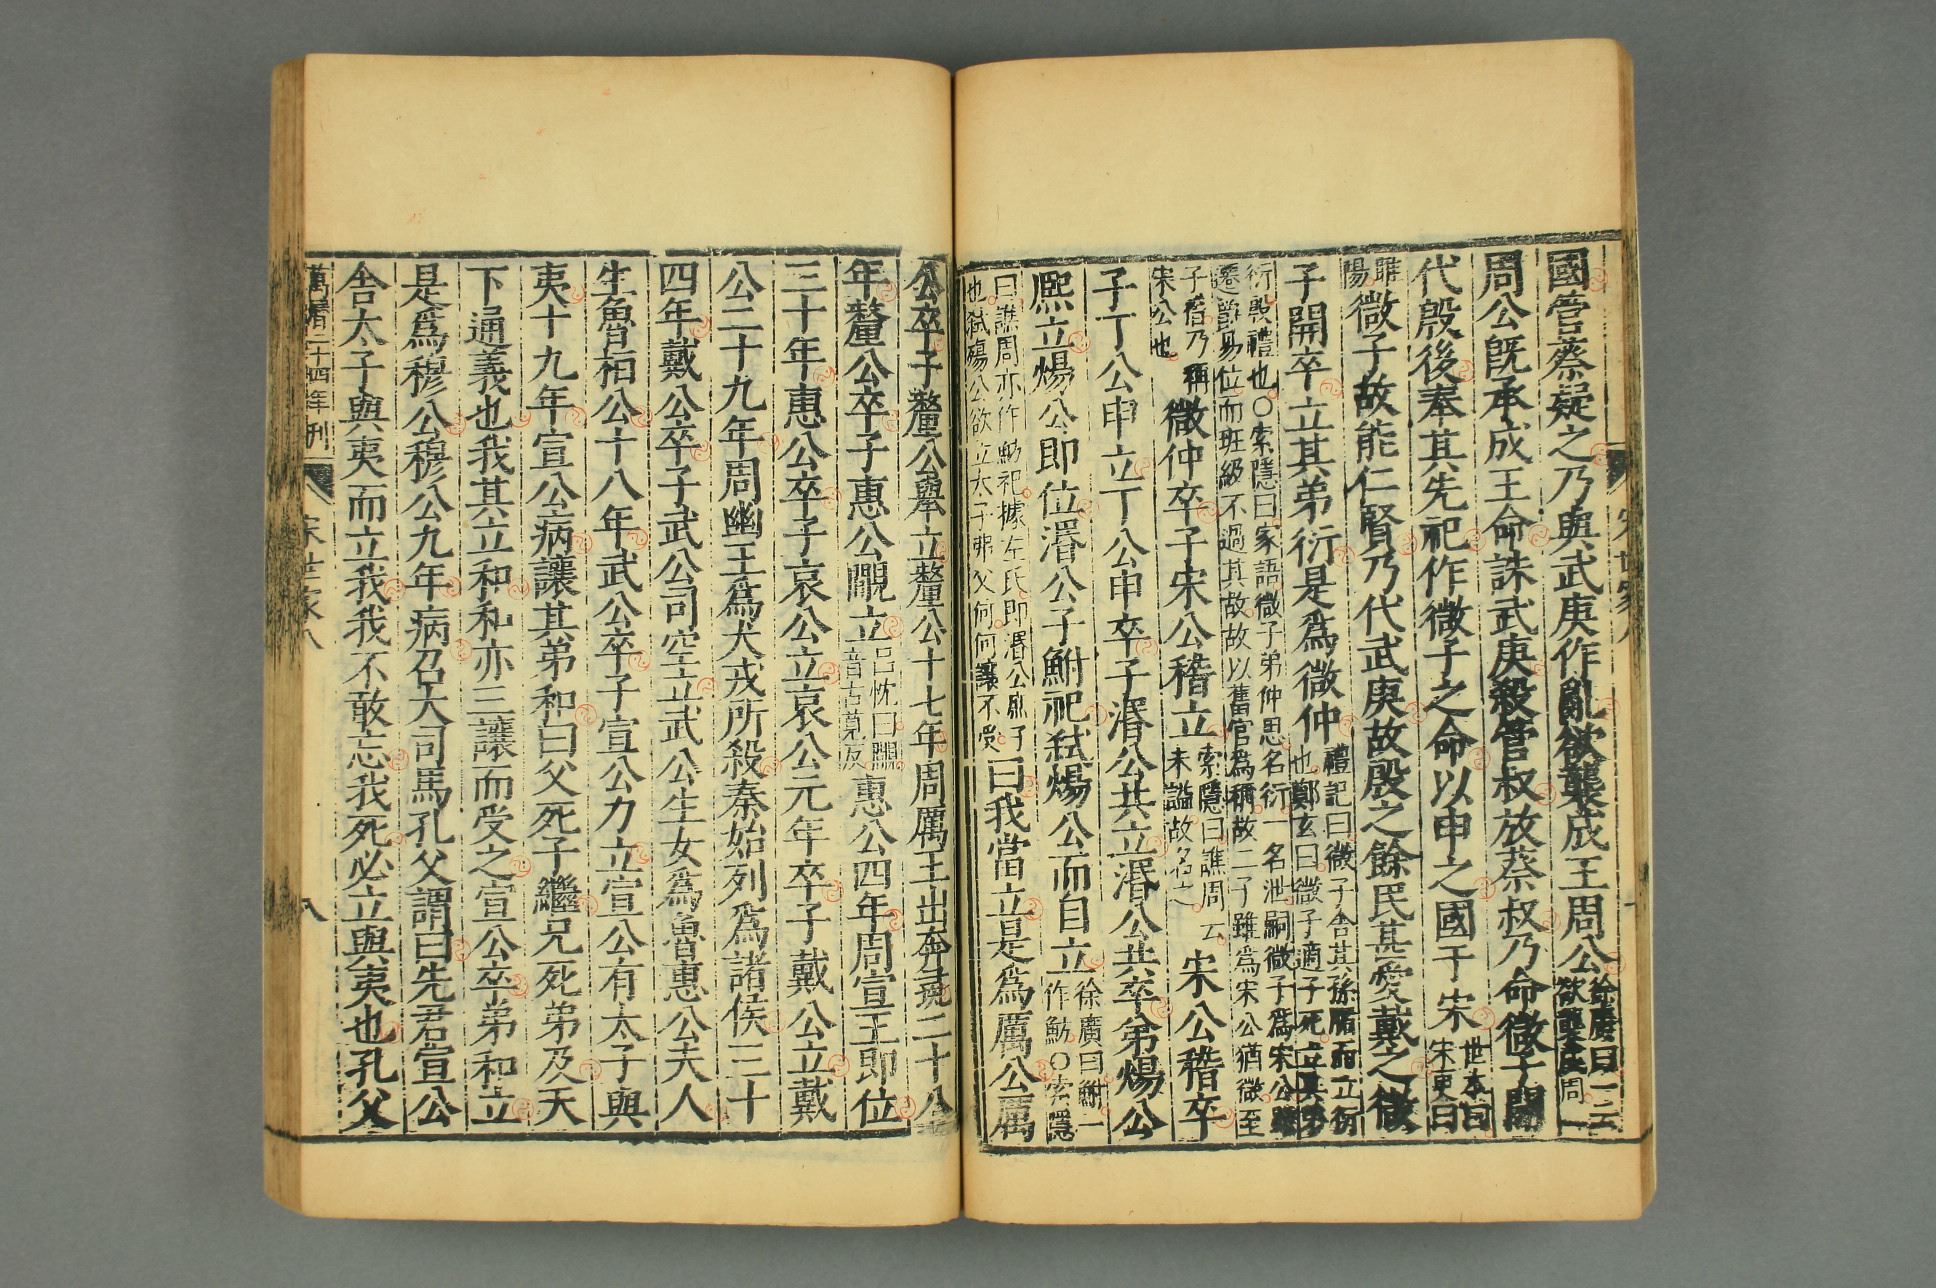 國管蔡疑之乃與武庚作亂欲襲成王周公徐廣曰一云欲襲成周
周公旣承成王命誅武庚殺管叔放蔡叔乃命微子開
代殷後奉其先祀作微子之命以申之國于宋世本曰宋更曰
睢陽微子故能仁賢乃代武庚故殷之餘民甚愛戴之微
子開卒立其弟衍是爲微仲禮記曰微子舍其孫腯而立衍也鄭玄曰微子適子死立其弟
衍殷禮也〇索隱曰家語微子弟仲思名衍一名泄嗣微子爲宋公雖遷爵易位而班級不過其故故以舊官爲稱故二子雖爲宋公猶微至
子稽乃稱宋公也微仲卒子宋公稽立索隱曰譙周云未謚故名之宋公稽卒
子丁公申立丁公申卒子湣公共立湣公共卒弟煬公
熙立煬公即位湣公子鮒祀弑煬公而自立徐廣曰鮒一作魴〇索隱
曰譙周亦作魴祀據左氏即湣公庶子也弑煬公欲立太子弗父何何讓不受曰我當立是爲厲公厲
公卒子釐公舉立釐公十七年周厲王出奔彘二十八
年釐公卒子惠公覵立呂忱曰覵音古莧反惠公四年周宣王即位
三十年惠公卒子哀公立哀公元年卒子戴公立戴
公二十九年周幽王爲犬戎所殺秦始列爲諸侯三十
四年戴公卒子武公司空立武公生女爲魯惠公夫人
生魯桓公十八年武公卒子宣公力立宣公有太子與
夷十九年宣公病讓其弟和曰父死子繼兄死弟及天
下通義也我其立和和亦三讓而受之宣公卒弟和立
是爲穆公穆公九年病召大司馬孔父謂曰先君宣公
舍太子與夷而立我我不敢忘我死必立與夷也孔父
萬曆二十四年刊
宋世家八
八